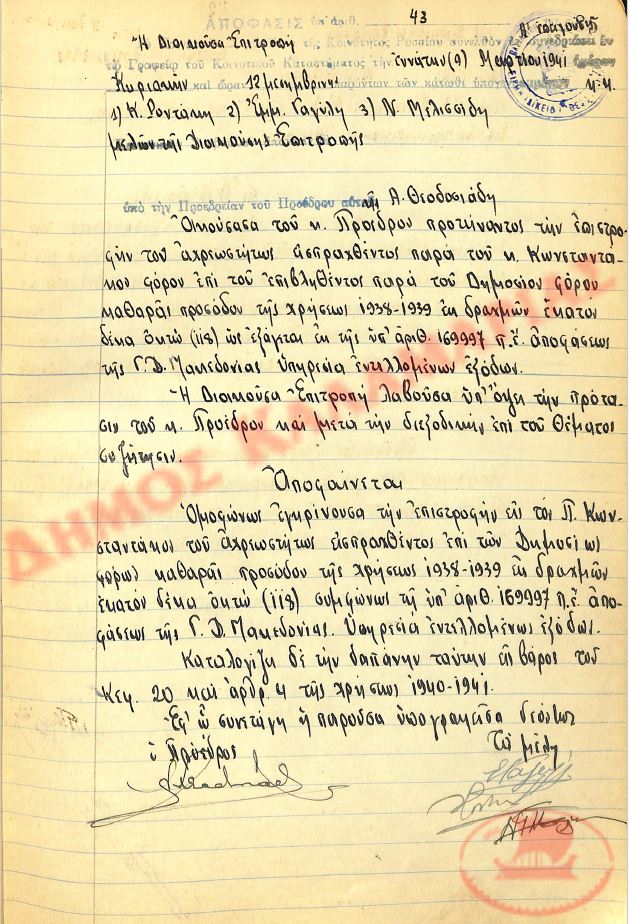 ΑΠΟΦΑΣΙΣ ὑπ' ἀριθ. 43
Ἡ Διοικοῦσα Ἐπιτροπή τῆς Κοινότητος Ρυσσίου συνελθοῦσα εἰς συνεδρίασιν ἐν
τῷ Γραφείῳ τοῦ Κοινοτικοῦ Καταστήματος τὴν ἐνάτην (9) Μαρτίου 1941 ἡμέραν
Κυριακὴν καὶ ὥραν 12 μεσημβρινὴν παρόντων τῶν κάτωθι ὑπογεγραμμένων κ.κ.
1) Κ. Ροντάκη 2) Ἐμμ. Γαγύλη 3) Ν. Μελισσίδη
μελῶν τῆς Διοικούσης Ἐπιτροπῆς
ὑπὸ τὴν Προεδρείαν τοῦ Προέδρου αὐτῆς Α. Θεοδοσιάδη
Ἀκούσασα τοῦ κ. Προέδρου προτείναντος τὴν ἐπιστρο
φὴν τοῦ ἀχρεωστήτως εἰσπραχθέντος παρὰ τοῦ κ. Κωνσταντά
κου φόρου ἐπὶ τοῦ ἐπιβληθέντος παρὰ τοῦ Δημοσίου φόρου
καθαρᾶς προσόδου τῆς χρήσεως 1938-1939 ἐκ δραχμῶν ἑκατὸν
δέκα ὀκτὼ (118) ὡς ἐξάγεται ἐκ τῆς ὑπ' ἀριθ. 169997 π.ἔ. ἀποφάσεως
τῆς Γ.Δ. Μακεδονίας Ὑπηρεσία ἐντελλομένων ἐξόδων.
Ἡ Διοικοῦσα Ἐπιτροπή λαβοῦσα ὑπ' ὄψει τὴν πρότα
σιν τοῦ κ. Προέδρου καὶ μετὰ τὴν διεξοδικὴν ἐπὶ τοῦ θέματος
συζήτησιν.
Ἀποφαίνεται
Ὁμοφώνως ἐγκρίνουσα τὴν ἐπιστροφὴν εἰς τὸν Π. Κων
σταντάκον τοῦ ἀχρεωστήτως εἰσπραχθέντος ἐπὶ τῶν Δημοσίων
φόρων καθαρᾶς προσόδου τῆς χρήσεως 1938-1939 ἐκ δραχμῶν
ἑκατὸν δέκα ὀκτὼ (118) συμφώνως τῇ ὑπ' ἀριθ. 169997 π.ἔ. ἀπο
φάσεως τῆς Γ.Δ. Μακεδονίας. Ὑπηρεσία ἐντελλομένων ἐξόδων.
Καταλογίζει δὲ τὴν δαπάνην ταύτην εἰς βάρος τοῦ
Κεφ. 20 καὶ ἄρθρ. 4 τῆς χρήσεως 1940-1941.
Ἐφ' ᾧ συνετάγη ἡ παροῦσα ὑπογραφεῖσα δεόντως
ὁ Πρόεδρος Τὰ μέλη
ΔΗΜΟΣ ΚΑΛΑΜΑΡΙΑΣ